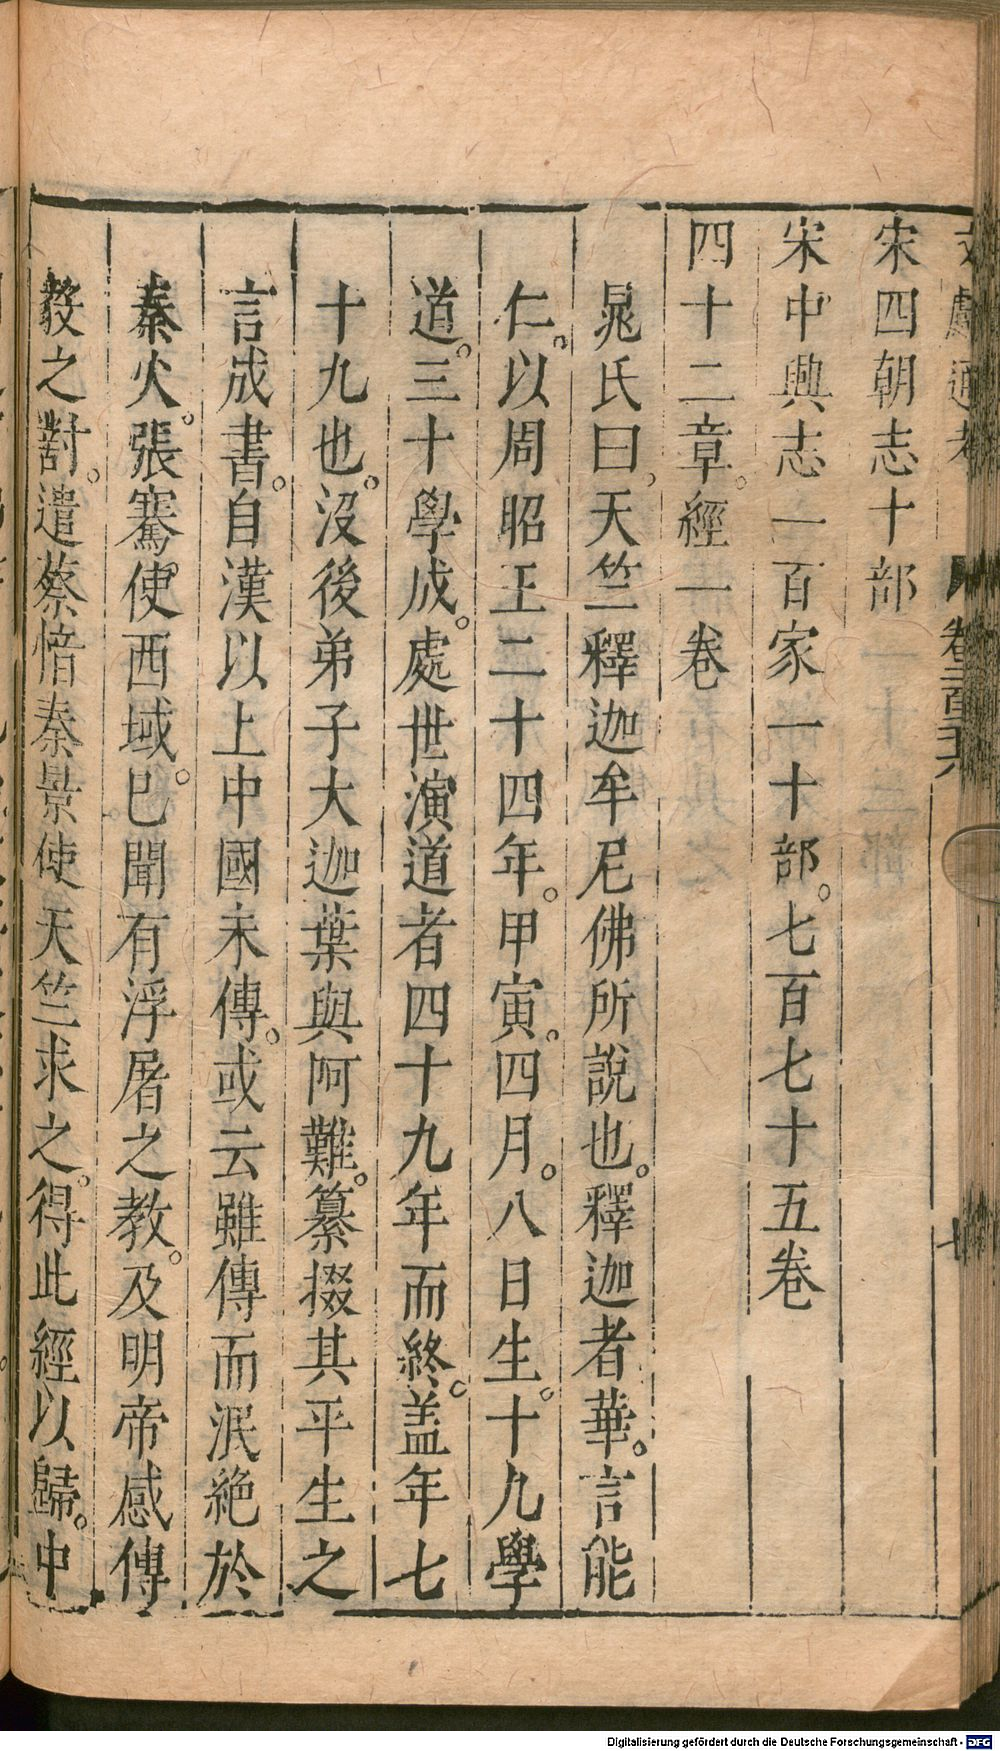 文獻通考 卷二百二十六 七
宋四朝志十部
宋中興志一百家一十部。七百七十五卷
四十二章。經一卷
晁氏曰。天竺釋迦牟尼佛所說也。釋迦者華。言能
仁。以周昭王二十四年。甲寅。四月。八日生。十九學
道。三十學成。處世演道者四十九年而終。盖年七
十九也。沒後弟子大迦葉與阿難。纂掇其平生之
言成書。自漢以上中國未傳。或云雖傳而泯絶於
秦火。張騫使西域。已聞有浮屠之教。及明帝感傳
毅之對。遣蔡愔秦景使天竺求之。得此經以歸。中
Digitalisierung gefördert durch die Deutsche Forschungsgemeinschaft - DFG